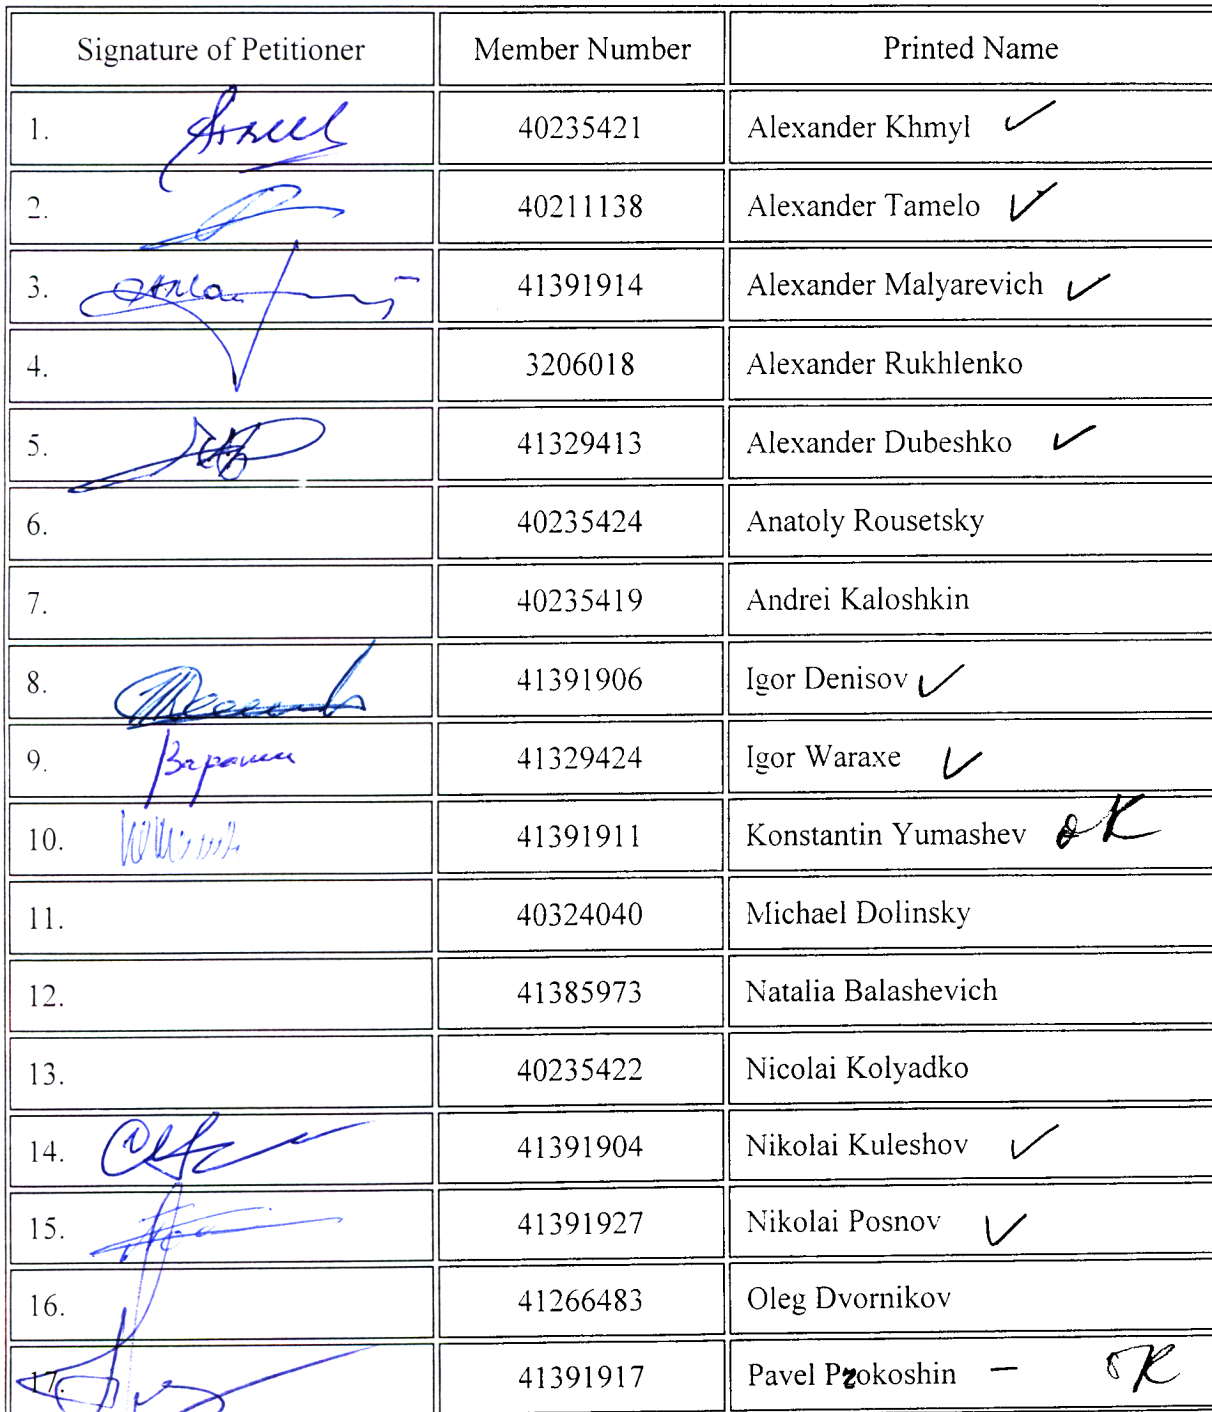 Signature of Petitioner Member Number Printed Name
1. 40235421 Alexander Khmyl ✓
2. 40211138 Alexander Tamelo ✓
3. 41391914 Alexander Malyarevich ✓
4. 3206018 Alexander Rukhlenko
5. 41329413 Alexander Dubeshko ✓
6. 40235424 Anatoly Rousetsky
7. 40235419 Andrei Kaloshkin
8. 41391906 Igor Denisov ✓
9. 41329424 Igor Waraxe ✓
10. 41391911 Konstantin Yumashev OK
11. 40324040 Michael Dolinsky
12. 41385973 Natalia Balashevich
13. 40235422 Nicolai Kolyadko
14. 41391904 Nikolai Kuleshov ✓
15. 41391927 Nikolai Posnov ✓
16. 41266483 Oleg Dvornikov
17. 41391917 Pavel Prokoshin – OK